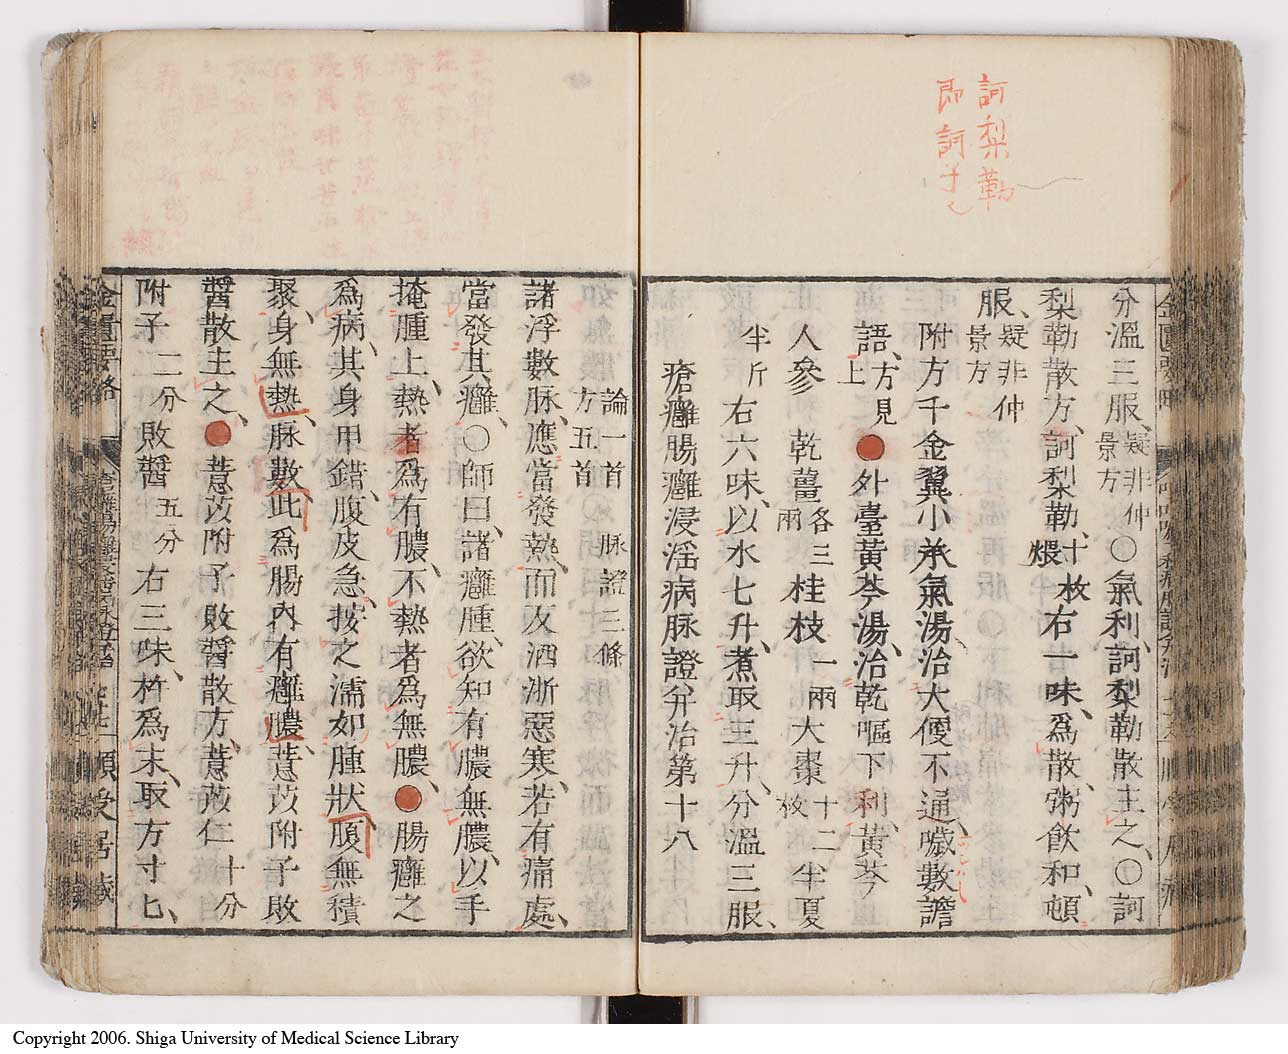 訶梨勒
即訶子也
分溫三服、疑非仲景方〇氣利、訶梨勒散主之、〇訶
梨勒散方、訶梨勒、十枚煨右一味、爲散、粥飮和、頓
服、疑非仲景方
附方千金翼小承氣湯、治大便不通、噦數譫
語、方見上●外臺黃芩湯、治乾嘔下利、黃芩
人參 乾薑各三兩桂枝一兩大棗十二枚半夏
半斤右六味、以水七升、煮取三升、分溫三服、
瘡癰腸癰浸淫病脉證幷治第十八
論一首 脉證三條
方五首
諸浮數脉、應當發熱、而反洒淅惡寒、若有痛處、
當發其癰、〇師曰、諸癰腫、欲知有膿無膿、以手
掩腫上、熱者爲有膿、不熱者爲無膿、●腸癰之
爲病、其身甲錯、腹皮急、按之濡如腫狀、腹無積
聚、身無熱、脉數、此爲腸內有癰膿、薏苡附子敗
醬散主之、●薏苡附子敗醬散方、薏苡仁十分
附子二分敗醬五分右三味、杵爲末、取方寸匕、
金匱要略
Copyright 2006. Shiga University of Medical Science Library